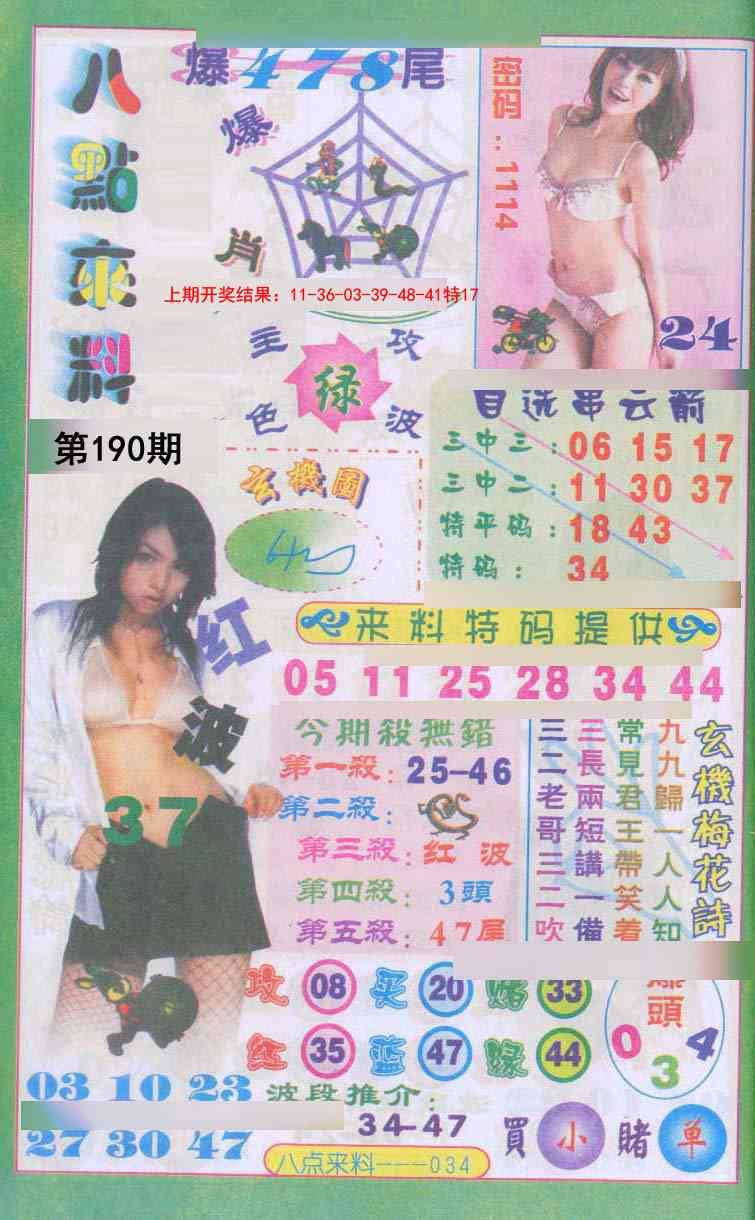 八點來料
爆478尾
爆肖
密码：1114
24
上期开奖结果：11-36-03-39-48-41特17
主攻
绿
色波
第190期
玄機圖
自选串云箭
三中三：06 15 17
三中二：11 30 37
特平码：18 43
特码：34
来料特码提供
05 11 25 28 34 44
红波
37
今期殺無錯
第一殺：25-46
第二殺：
第三殺：红波
第四殺：3頭
第五殺：47尾
玄機梅花詩
九九歸一人人知
常見君王帶笑着
三長兩短講一備
三二老哥三二吹
攻 08 买 20 赌 33
红 35 蓝 47 绿 44
頭
0 3 4
03 10 23
27 30 47
波段推介：
34-47
買小賭单
八点来料---034